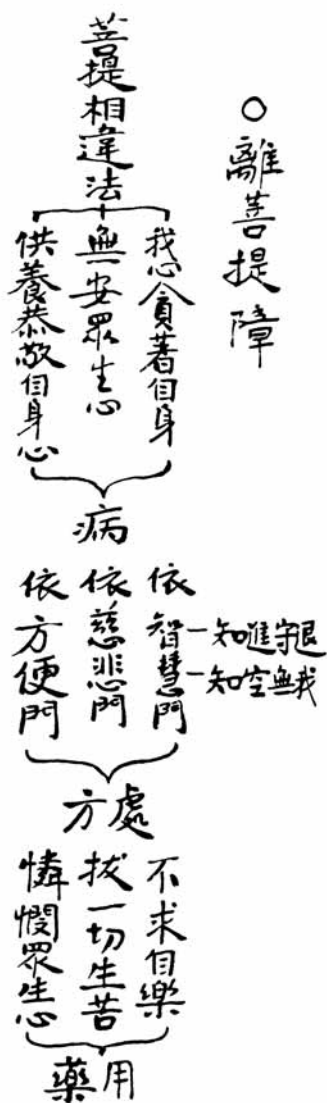 ○離菩提障
菩提相違法
我心貪著自身
無安眾生心
供養恭敬自身心
病
依智慧門
知進守退
知空無我
依慈悲門
依方便門
方處
不求自樂
拔一切生苦
憐憫眾生心
藥用